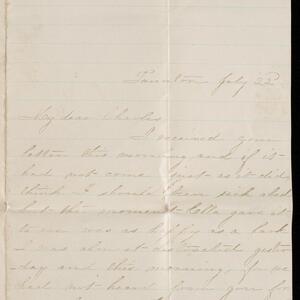 Taunton July 22
My dear Charles
I received your
letter this morning and if it
had not come just as it did
think I should been sick abed
but the moment Ella gave it
to me was as happy as a lark
I was almost distracted yester
day and this morning, for we
had not heard from you for